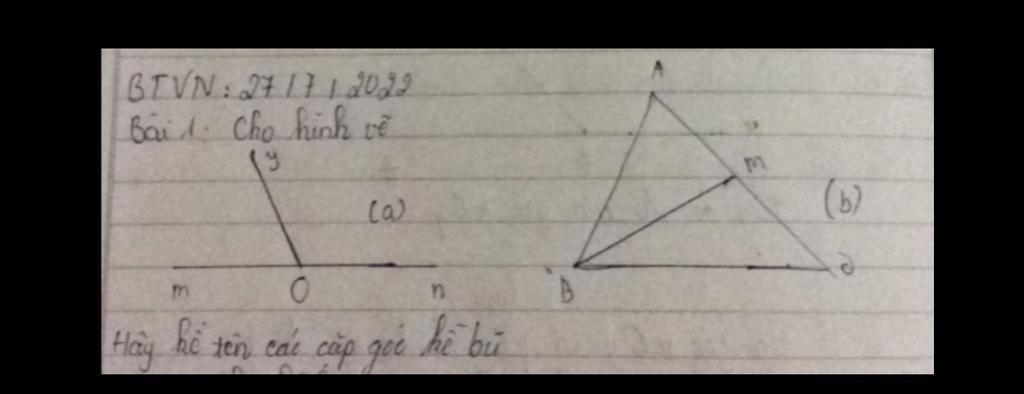 BTVN: 27/7/2022
Bài 1: Cho hình vẽ
A
y
m
(a)
(b)
m
O
n
B
Hãy kể tên các cặp góc kề bù